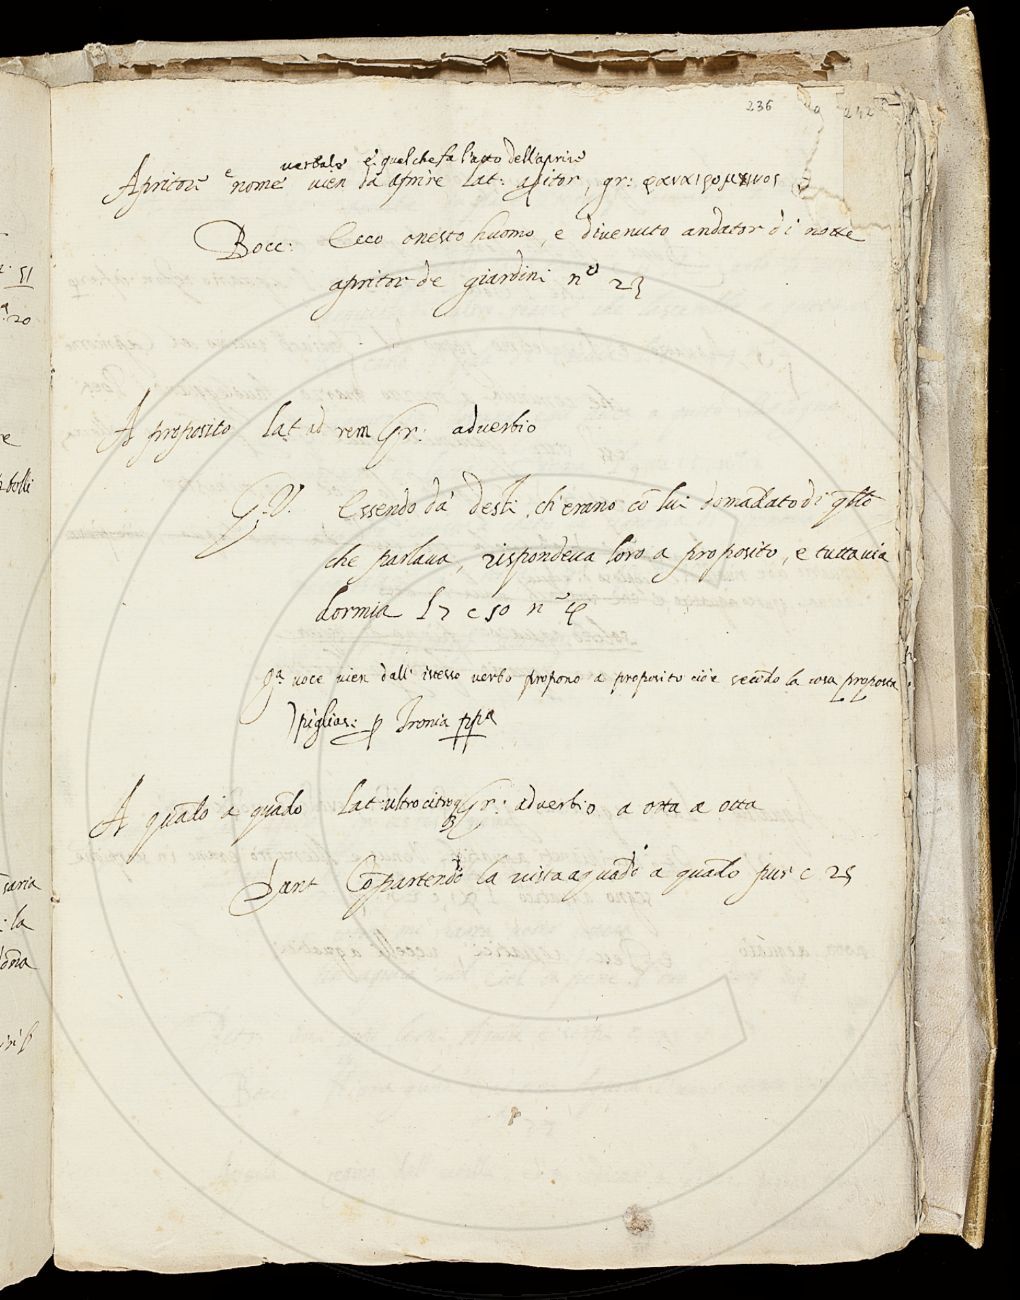 236
242
verbale è quel che fa l'atto dell'aprire
Apritore è nome vien da aprire Lat: apitor, gr:
Bocc: Ecco onesto huomo, e divenuto andator di notte
apritor de giardini n° 23
A proposito Lat ad rem Gr: adverbio
G.V. Essendo da desti, ch'erano cō lui domādato di qllo
che parlava, rispondeva loro a proposito, e tuttavia
dormia l 7 c 50 n° 4
qa voce vien dall' istesso verbo propono a proposito cioè secōdo la cosa proposta
piglias: p Ironia
A quādo a quādo Lat: ultro citroq Gr: adverbio a otta a otta
Dant Cōpartendo la vista a quādo a quādo pur c 25
51
20
saria
: la